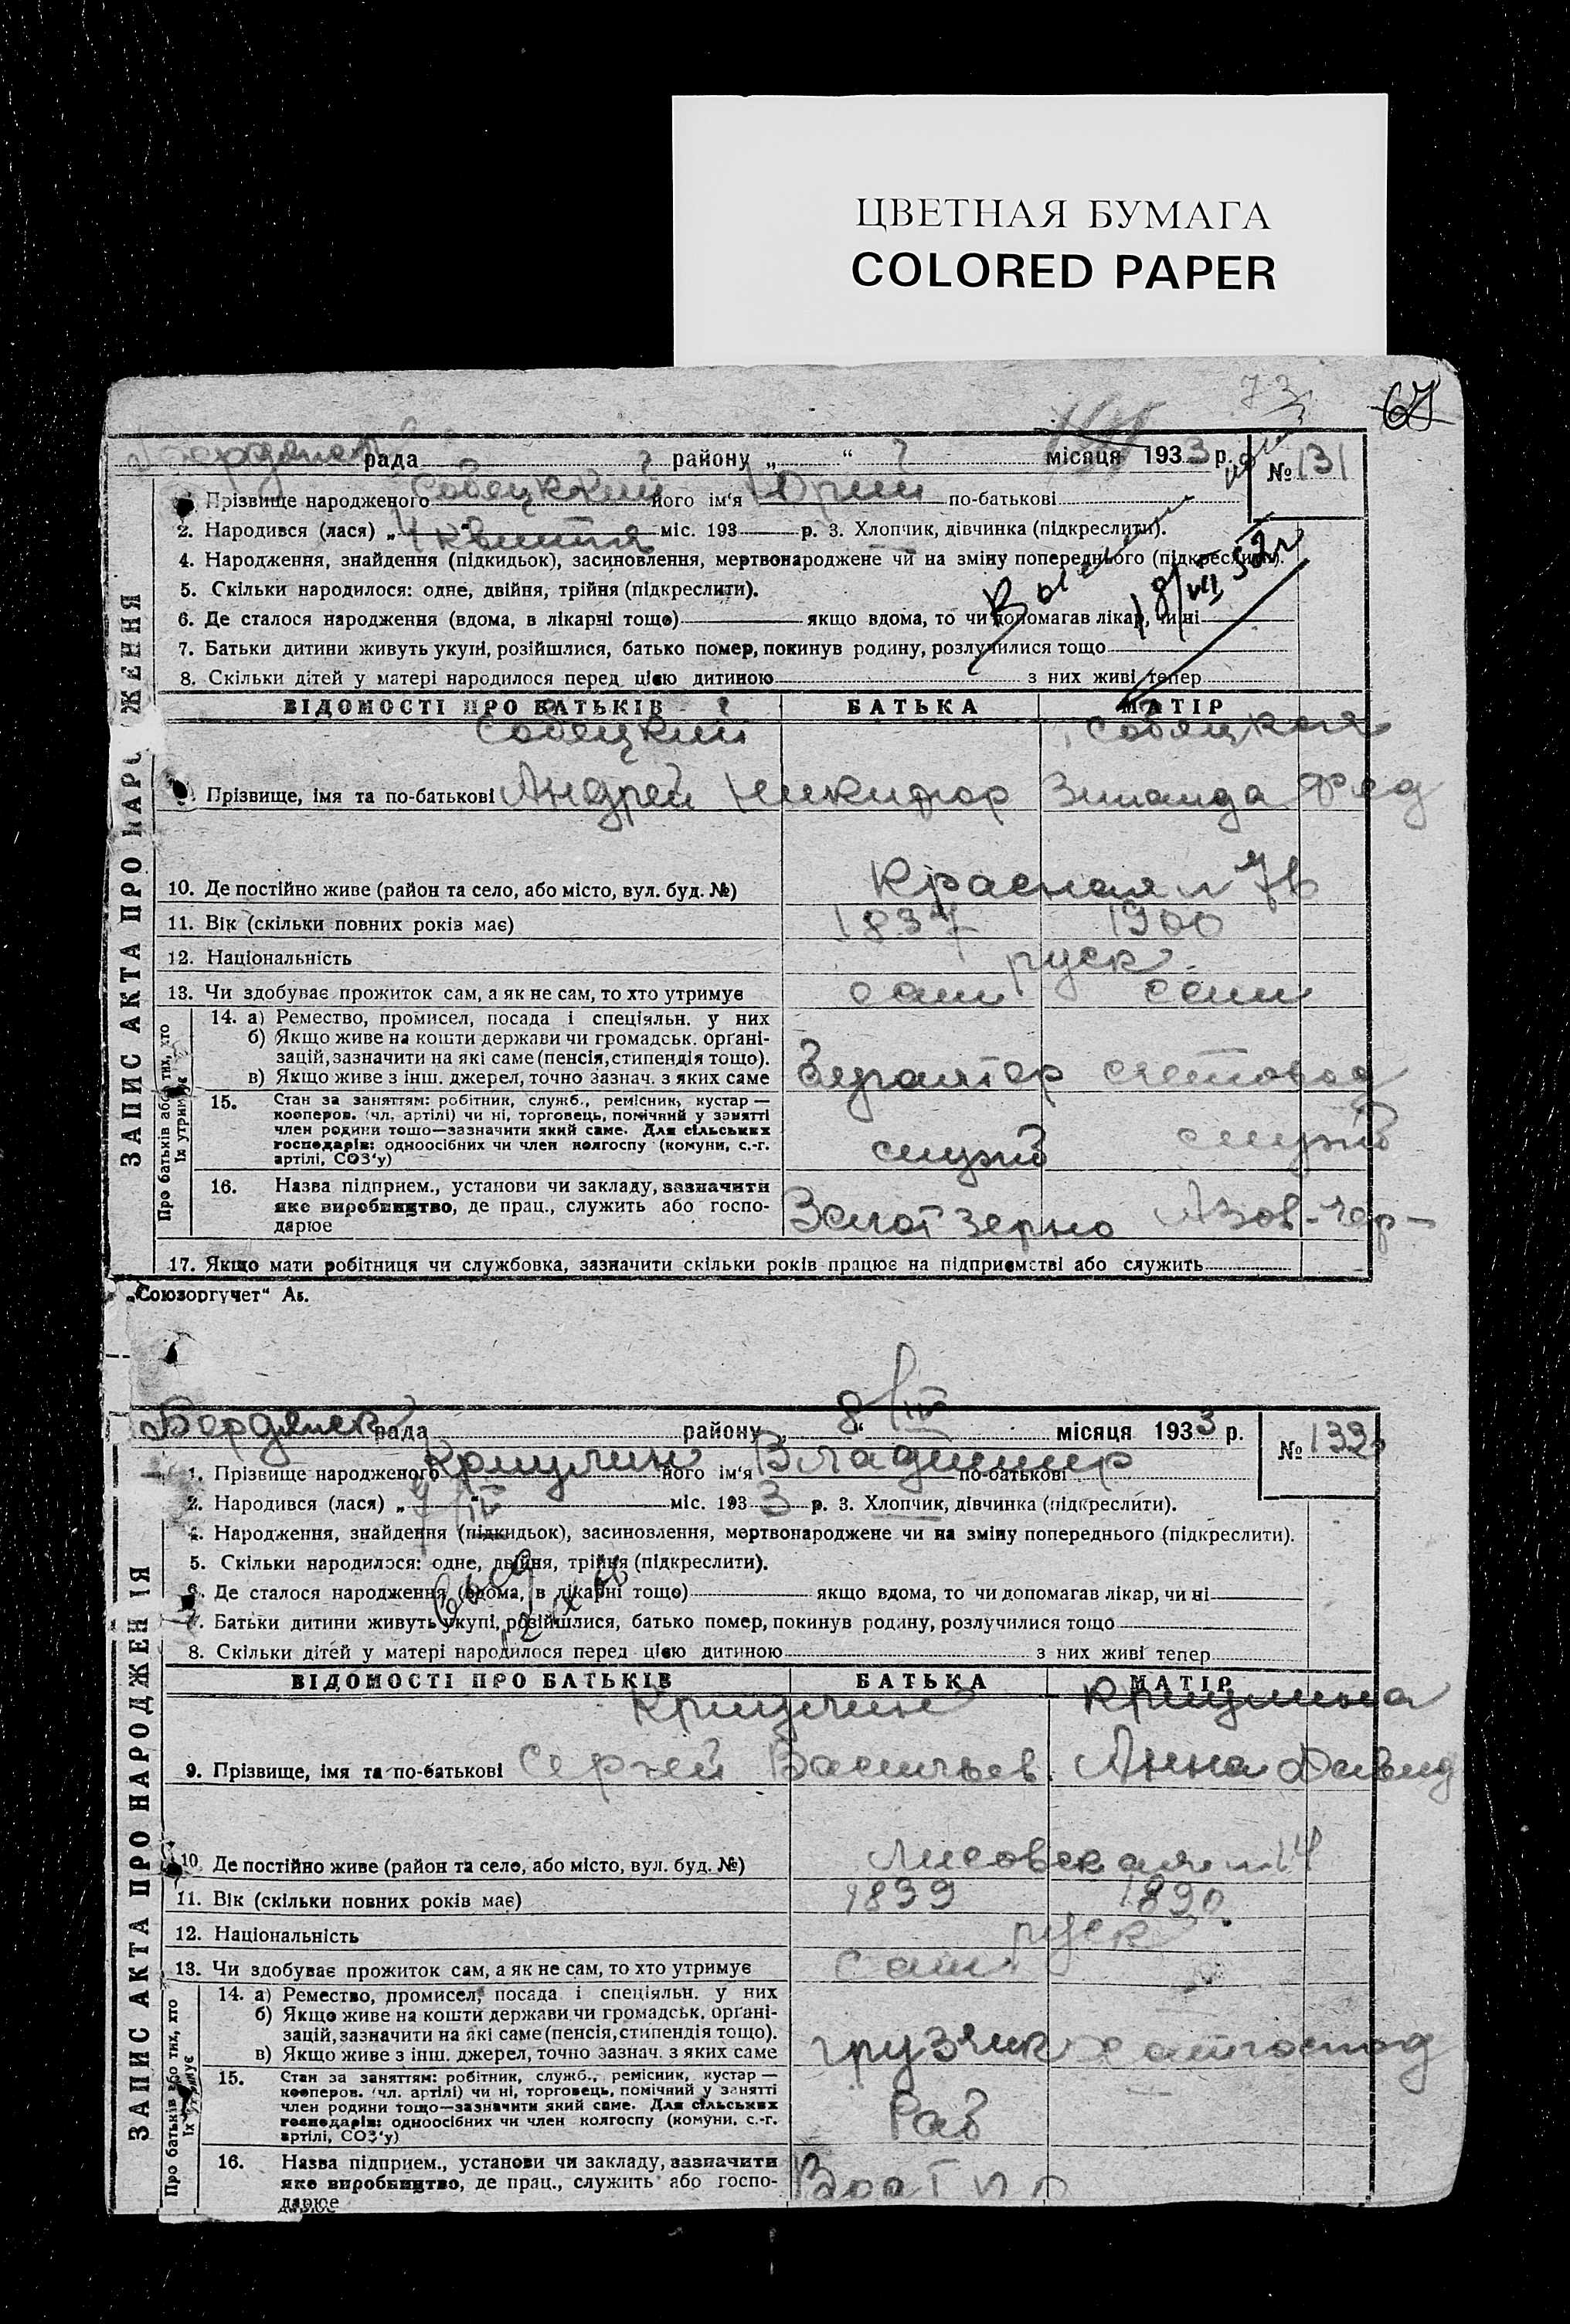 ЦВЕТНАЯ БУМАГА
COLORED PAPER
73
67
Бердянск рада району „ “ місяця 1933 р. № 131
1. Прізвище народженого Собецкий його ім'я Юрий по-батькові
2. Народився (лася) „4 квиття міс. 193 р. 3. Хлопчик, дівчинка (підкреслити).
4. Народження, знайдення (підкидьок), засиновлення, мертвонароджене чи на зміну попереднього (підкреслити).
5. Скільки народилося: одне, двійня, трійня (підкреслити).
6. Де сталося народження (вдома, в лікарні тощо) якщо вдома, то чи допомагав лікар, чи ні
7. Батьки дитини живуть укупі, розійшлися, батько помер, покинув родину, розлучилися тощо
8. Скільки дітей у матері народилося перед цією дитиною з них живі тепер
ВІДОМОСТІ ПРО БАТЬКІВ БАТЬКА МАТІР
Собецкий Собецкая
Прізвище, імя та по-батькові Андрей Никифор Зинаида Фед
10. Де постійно живе (район та село, або місто, вул. буд. №) Красная
11. Вік (скільки повних років має) 1897 1900
12. Національність руск
13. Чи здобуває прожиток сам, а як не сам, то хто утримує сам сам
14. а) Ремество, промисел, посада і спеціяльн. у них
б) Якщо живе на кошти держави чи громадськ. орґані-
зацій, зазначити на які саме (пенсія, стипендія тощо).
в) Якщо живе з інш. джерел, точно зазнач. з яких саме счетовод
15. Стан за заняттям: робітник, служб., ремісник, кустар —
кооперов. (чл. артілі) чи ні, торговець, помічний у занятті
член родини тощо—зазначити який саме. Для сільських
господарів: одноосібних чи член колгоспу (комуни, с.-г.
артілі, СОЗ'у) служ служ
16. Назва підприєм., установи чи закладу, зазначити
яке виробництво, де прац., служить або госпо-
дарює Загот зерно Азов-Чер-
17. Якщо мати робітниця чи службовка, зазначити скільки років працює на підприємстві або служить
ЗАПИС АКТА ПРО НАРОДЖЕННЯ
Про батьків або тих, хто їх утримує
„Союзоргучет“ Ав.
Бердянск рада району „8/IV“ місяця 1933 р. № 132
1. Прізвище народженого Крицулин його ім'я Владимир по-батькові
2. Народився (лася) „7/IV міс. 1933 р. 3. Хлопчик, дівчинка (підкреслити).
4. Народження, знайдення (підкидьок), засиновлення, мертвонароджене чи на зміну попереднього (підкреслити).
5. Скільки народилося: одне, двійня, трійня (підкреслити).
6. Де сталося народження (вдома, в лікарні тощо) якщо вдома, то чи допомагав лікар, чи ні
7. Батьки дитини живуть укупі, розійшлися, батько помер, покинув родину, розлучилися тощо
8. Скільки дітей у матері народилося перед цією дитиною з них живі тепер
ВІДОМОСТІ ПРО БАТЬКІВ БАТЬКА МАТІР
Крицулин Крицулина
9. Прізвище, імя та по-батькові Сергей Васильев. Анна Давид
10. Де постійно живе (район та село, або місто, вул. буд. №) Лисовская
11. Вік (скільки повних років має) 1899 1890
12. Національність руск
13. Чи здобуває прожиток сам, а як не сам, то хто утримує сам
14. а) Ремество, промисел, посада і спеціяльн. у них
б) Якщо живе на кошти держави чи громадськ. орґані-
зацій, зазначити на які саме (пенсія, стипендія тощо).
в) Якщо живе з інш. джерел, точно зазнач. з яких саме грузчик хатгоспод
15. Стан за заняттям: робітник, служб., ремісник, кустар —
кооперов. (чл. артілі) чи ні, торговець, помічний у занятті
член родини тощо—зазначити який саме. Для сільських
господарів: одноосібних чи член колгоспу (комуни, с.-г.
артілі, СОЗ'у) Раб
16. Назва підприєм., установи чи закладу, зазначити
яке виробництво, де прац., служить або госпо-
дарює
ЗАПИС АКТА ПРО НАРОДЖЕННЯ
Про батьків або тих, хто їх утримує